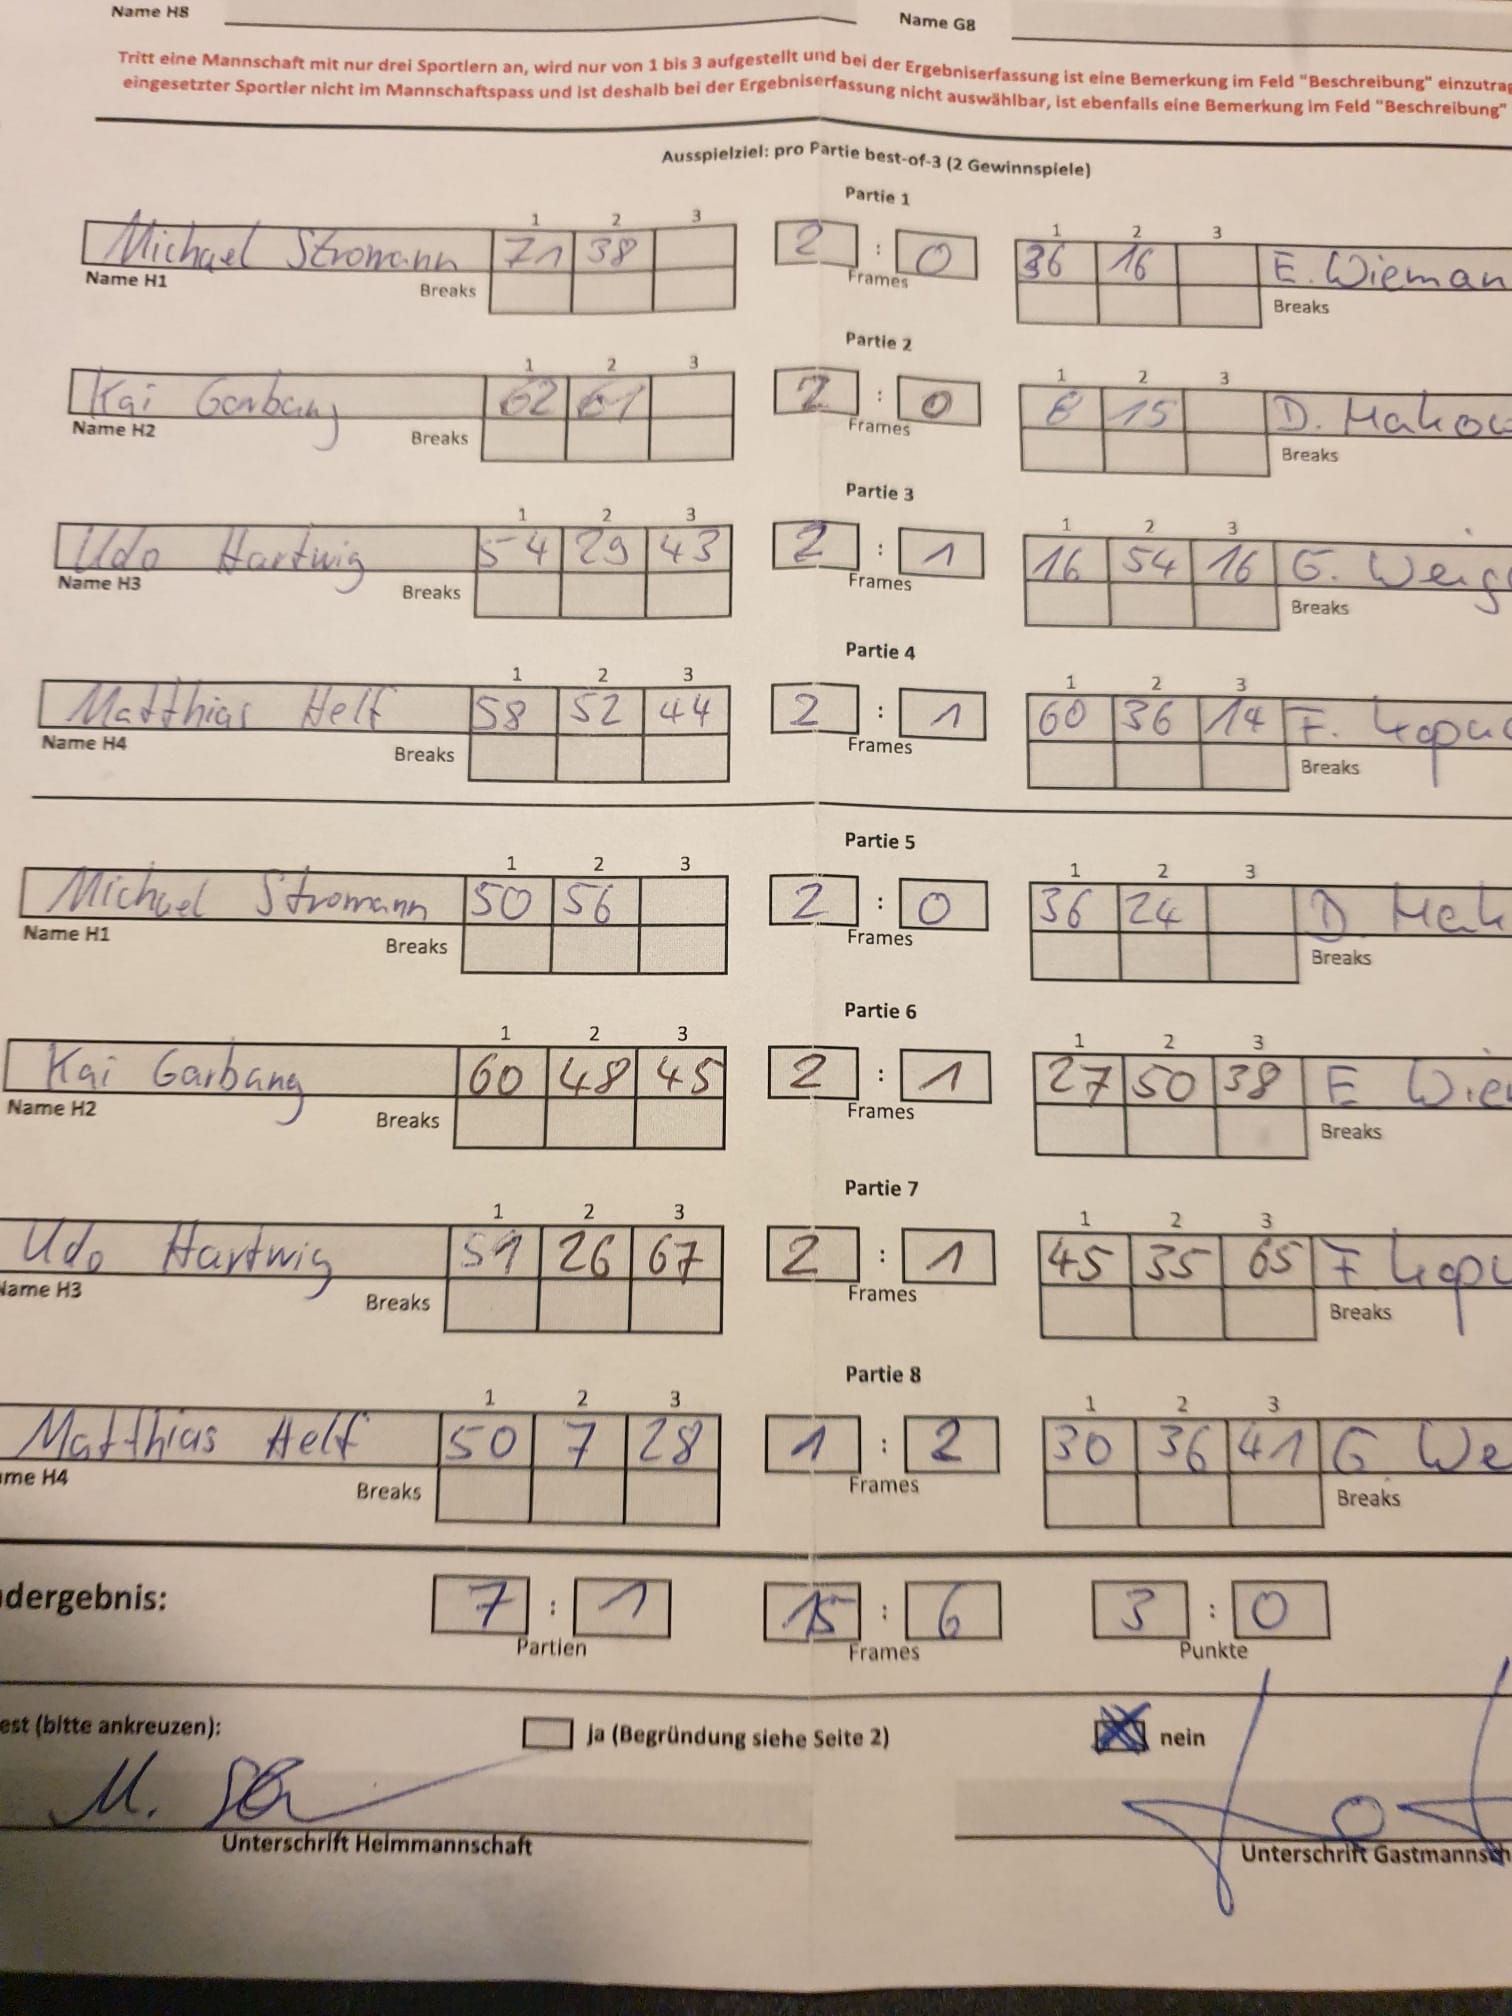 Name H8 Name G8
Tritt eine Mannschaft mit nur drei Sportlern an, wird nur von 1 bis 3 aufgestellt und bei der Ergebniserfassung ist eine Bemerkung im Feld "Beschreibung" einzutrag
eingesetzter Sportler nicht im Mannschaftspass und ist deshalb bei der Ergebniserfassung nicht auswählbar, ist ebenfalls eine Bemerkung im Feld "Beschreibung"
Ausspielziel: pro Partie best-of-3 (2 Gewinnspiele)
Partie 1
1 2 3 1 2 3
Michael Stromann 71 38 2 : 0 36 16 E. Wieman
Name H1 Breaks Frames Breaks
Partie 2
1 2 3 1 2 3
Kai Garbang 62 61 2 : 0 8 15 D. Makow
Name H2 Breaks Frames Breaks
Partie 3
1 2 3 1 2 3
Udo Hartwig 54 29 43 2 : 1 16 54 16 G. Weig
Name H3 Breaks Frames Breaks
Partie 4
1 2 3 1 2 3
Matthias Helf 58 52 44 2 : 1 60 36 14 F.
Name H4 Breaks Frames Breaks
Partie 5
1 2 3 1 2 3
Michael Stromann 50 56 2 : 0 36 24 D Mak
Name H1 Breaks Frames Breaks
Partie 6
1 2 3 1 2 3
Kai Garbang 60 48 45 2 : 1 27 50 38 E Wie
Name H2 Breaks Frames Breaks
Partie 7
1 2 3 1 2 3
Udo Hartwig 51 26 67 2 : 1 45 35 65 F
Name H3 Breaks Frames Breaks
Partie 8
1 2 3 1 2 3
Matthias Helf 50 7 28 1 : 2 30 36 41 G We
me H4 Breaks Frames Breaks
dergebnis: 7 : 1 15 : 6 3 : 0
Partien Frames Punkte
est (bitte ankreuzen): ja (Begründung siehe Seite 2) nein
M.
Unterschrift Heimmannschaft Unterschrift Gastmannsch